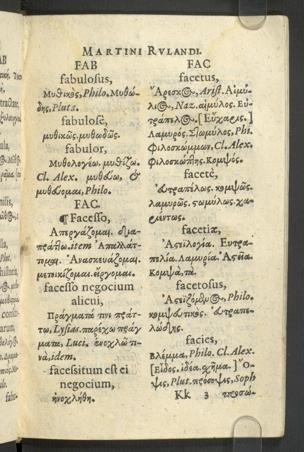 MARTINI RVLANDI.
FAB
fabulosus,
Μυθικὸς, Philo. Μυθώ-
δης, Pluta.
fabulosè,
μυθικῶς. μυθωδῶς.
fabulor,
Μυθολογέω. μυθίζω.
Cl. Alex. μυθέω, &
μυθέομαι, Philo.
FAC.
¶ Facesso,
Απεργάζομαι. δια-
πράττω. item Απαλλάτ-
τομαι. Ανασκευάζομαι.
μετοικίζομαι. εἴργομαι.
facesso negocium
alicui,
Πράγματά τινι πράτ-
τω, Lysias. παρέχω πράγ
ματα, Luci. ἐνοχλῶ τι-
νὰ, idem.
facessitum est ei
negocium,
ἠνοχλήθη.
FAC
facetus,
Ἄρεσκος, Arist. Αἱμύ-
λιος, Naz. αἱμύλος. Εὐ-
τράπελος. [Εὔχαρις.]
Λαμυρὸς. Στωμύλος, Phi.
Φιλοσκώμμων, Cl. Alex.
Φιλοσκώπτης. Κομψός.
facetè,
εὐτραπέλως. κομψῶς.
λαμυρῶς. στωμύλως. χα-
ριέντως.
facetiæ,
Ἀστεϊλογία. Εὐτρα-
πελία. Λαμυρία. Ἀστεῖα.
Κομψὰ, τά.
facetosus,
Ἀστεϊζόμενος, Philo.
κομψευτικὸς. εὐτραπε-
λώδης.
facies,
Βλέμμα, Philo. Cl. Alex.
[Εἶδος. ἰδέα. χῆμα.] Ὄ-
ψις, Plut. πρόσοψις, Soph
Kk 3